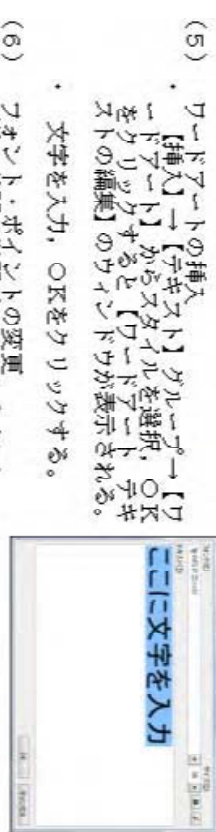 (5) ワードアートの挿入
・ 【挿入】→【テキスト】グループ→【ワ
ードアート】からスタイルを選択，ＯＫ
をクリックすると【ワードアート テキ
ストの編集】のウィンドウが表示される。
・ 文字を入力，ＯＫをクリックする。
(6) フォント・ポイントの変更
ここに文字を入力